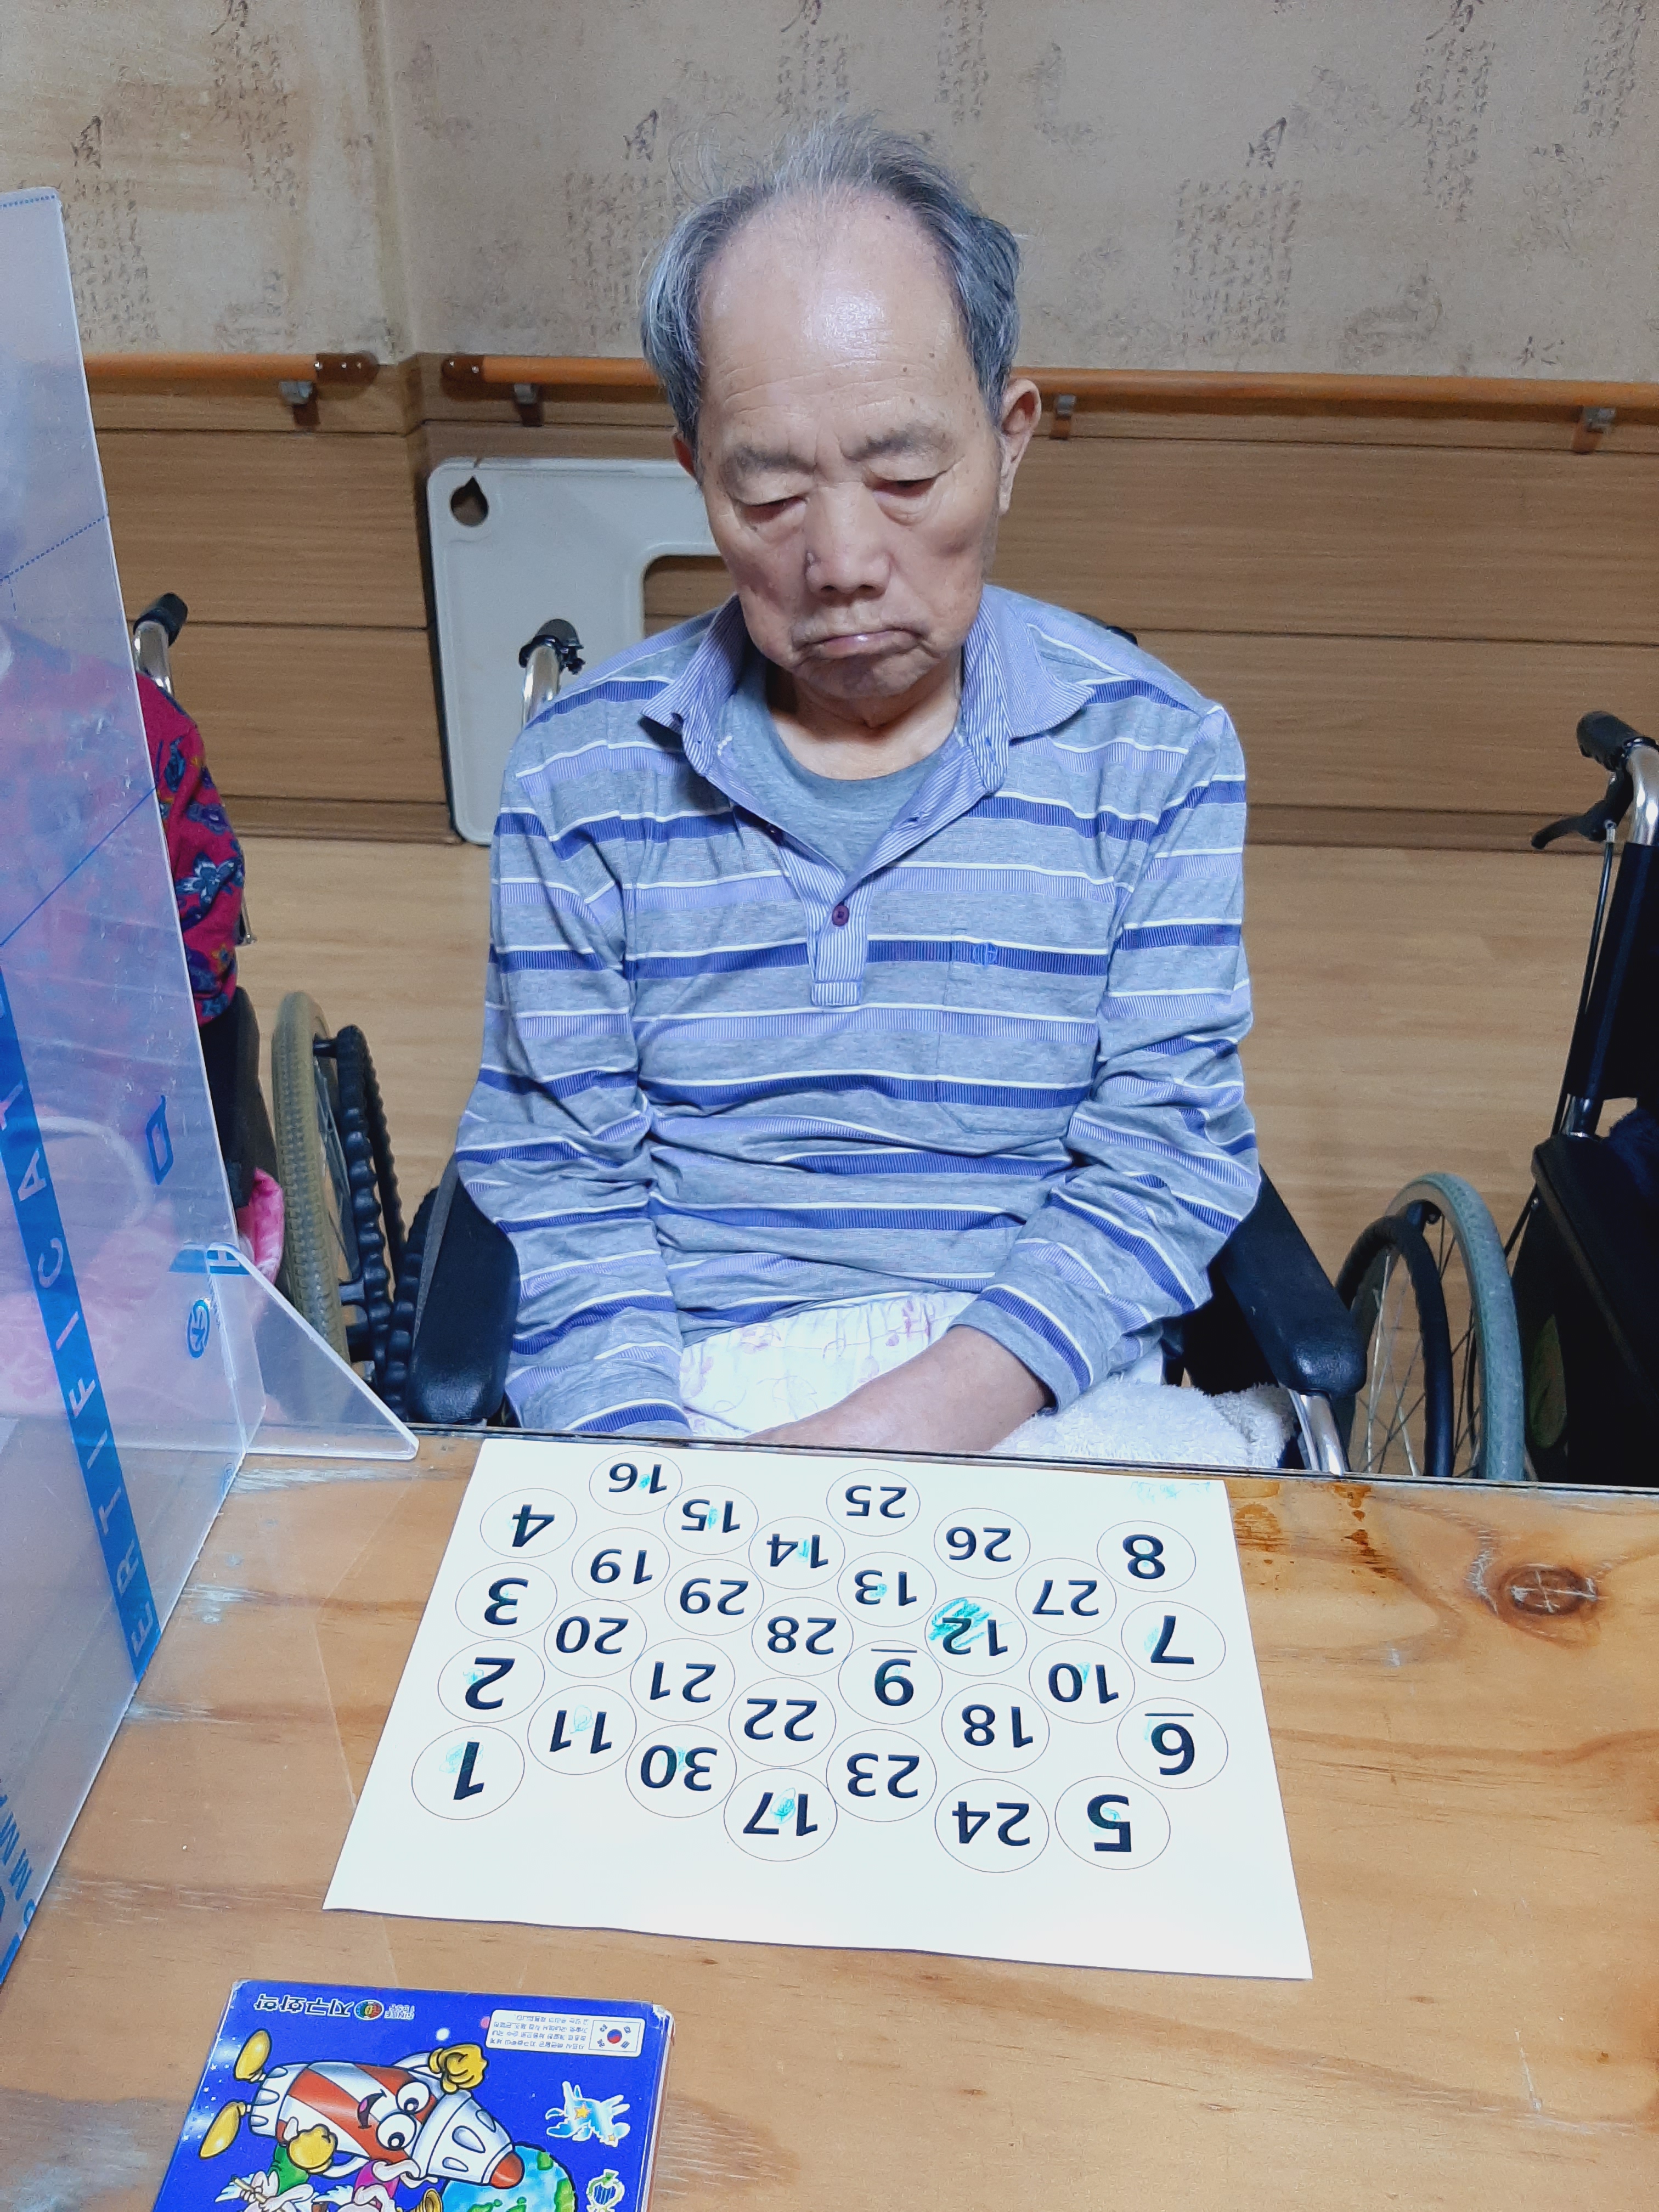 5 24 17 23 30 1
6 18 22 11
10 9 21 2
7 12 28 20
27 13 29 3
8 26 14 19 4
25 15 16
지구화학
SINCE